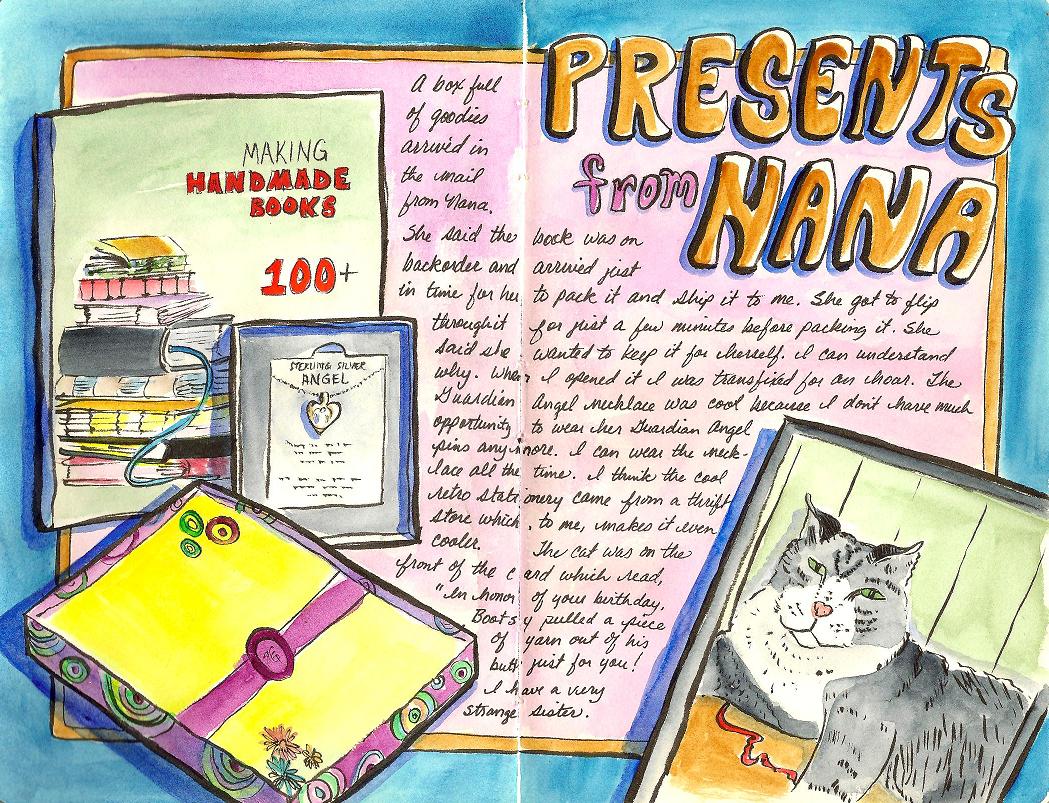 PRESENTS
from NANA
MAKING
HANDMADE
BOOKS
100+
STERLING SILVER
ANGEL
A box full
of goodies
arrived in
the mail
from Nana.
She said the book was on
backorder and arrived just
in time for her to pack it and ship it to me. She got to flip
through it for just a few minutes before packing it. She
said she wanted to keep it for herself. I can understand
why. When I opened it I was transfixed for an hour. The
Guardian Angel Necklace was cool because I don't have much
opportunity to wear her Guardian Angel
pins anymore. I can wear the neck-
lace all the time. I think the cool
retro stationery came from a thrift
store which, to me, makes it even
cooler. The cat was on the
front of the card which read,
"In honor of your birthday,
Bootsy pulled a piece
of yarn out of his
butt just for you!
I have a very
strange sister.